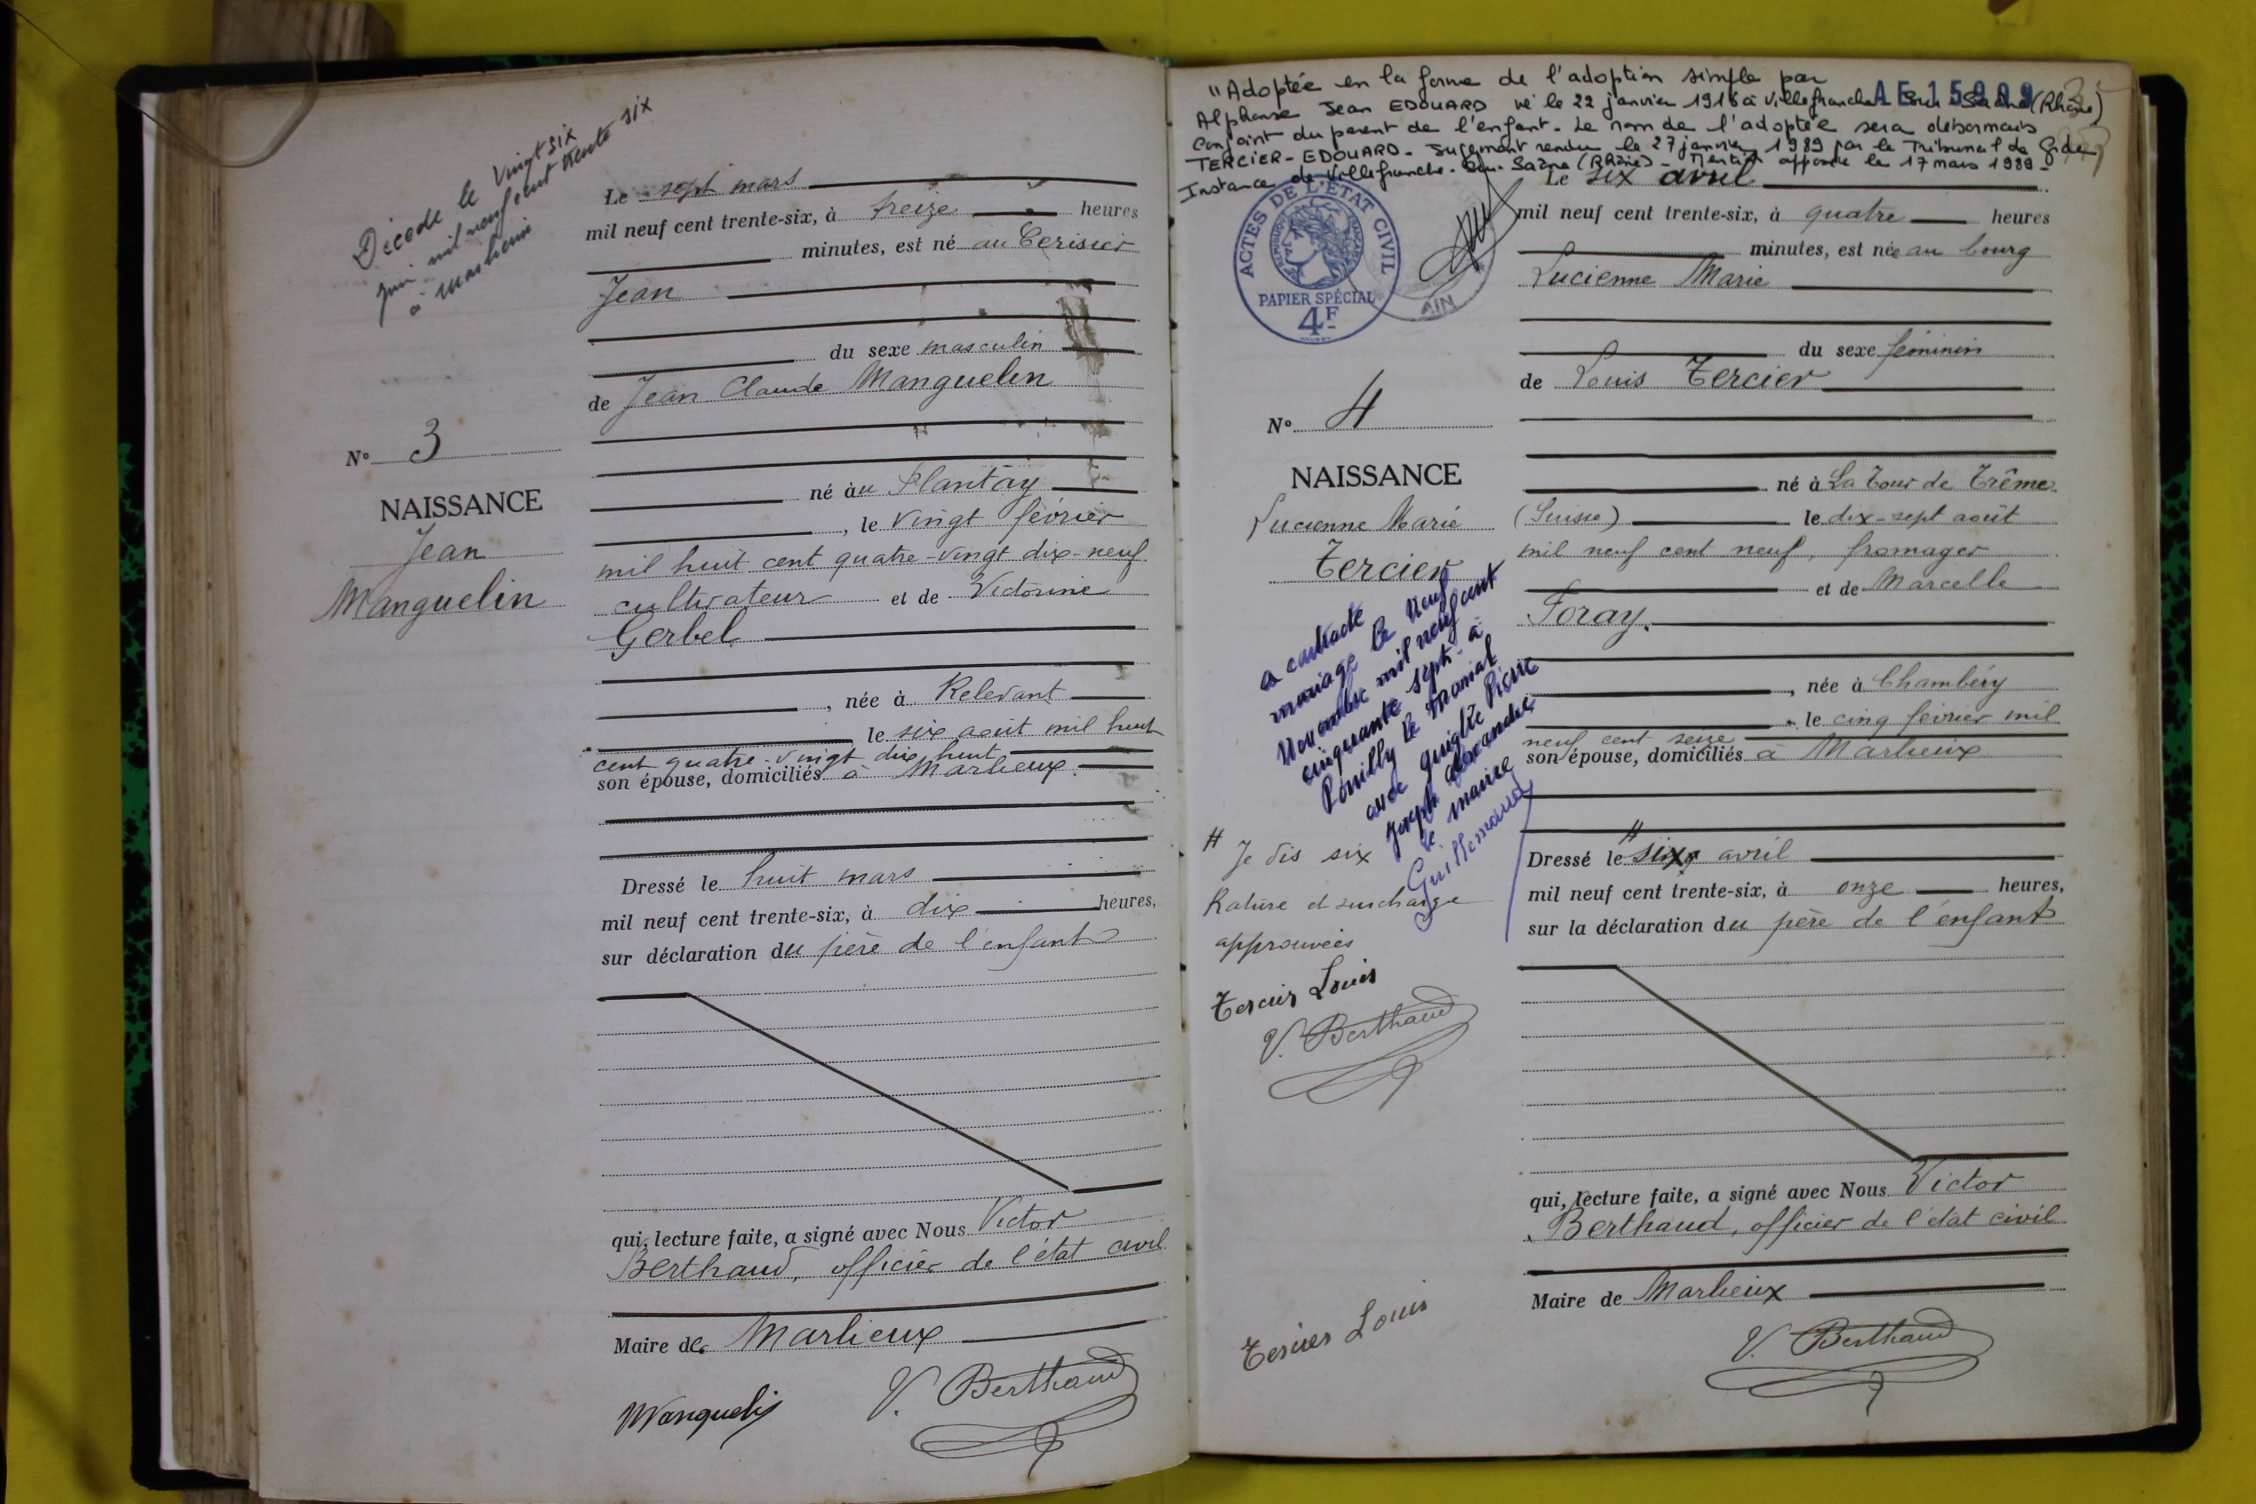 Décédé le vingt six
juin mil neuf cent trente six
à Marlieux
N° 3
NAISSANCE
Jean
Manguelin
Le sept mars
mil neuf cent trente-six, à treize heures
minutes, est né au Cerisier
Jean
du sexe masculin
de Jean Claude Manguelin
né àu Plantay
, le vingt février
mil huit cent quatre-vingt dix-neuf
cultivateur et de Victorine
Gerbel
, née à Relevant
le six août mil huit
cent quatre-vingt dix huit
son épouse, domiciliés à Marlieux.
Dressé le huit mars
mil neuf cent trente-six, à dix heures,
sur déclaration du père de l'enfant
qui, lecture faite, a signé avec Nous Victor
Berthaud, officier de l'état civil
Maire de Marlieux
Manguelin
V. Berthaud
"Adoptée en la forme de l'adoption simple par
Alphonse Jean EDOUARD né le 22 janvier 1916 à Villefranche sur Saône (Rhône)
conjoint du parent de l'enfant. Le nom de l'adoptée sera désormais
TERCIER-EDOUARD. Jugement rendu le 27 janvier 1989 par le Tribunal de Gde
Instance de Villefranche-sur-Saône (Rhône) - Mention apposée le 17 mars 1989-
AE 15909
ACTES DE L'ÉTAT CIVIL
PAPIER SPÉCIAL
4F
AIN
N° 4
NAISSANCE
Lucienne Marie
Tercier
a contracté
mariage le neuf
Novembre mil neuf cent
cinquante sept à
Pouilly le Monial
avec Pierre
Joseph Alexandre
le maire
Guillemaud
# Je dis six
Rature et surcharge
approuvées
Tercier Louis
V. Berthaud
Tercier Louis
Le six avril
mil neuf cent trente-six, à quatre heures
minutes, est née au bourg
Lucienne Marie
du sexe féminin
de Louis Tercier
né à La Tour de Trême
(Suisse) le dix-sept août
mil neuf cent neuf, fromager
et de Marcelle
Foray.
, née à Chambéry
le cinq février mil
neuf cent seize
son épouse, domiciliés à Marlieux
Dressé le # six avril
mil neuf cent trente-six, à onze heures,
sur la déclaration du père de l'enfant
qui, lecture faite, a signé avec Nous Victor
Berthaud, officier de l'état civil
Maire de Marlieux
V. Berthaud